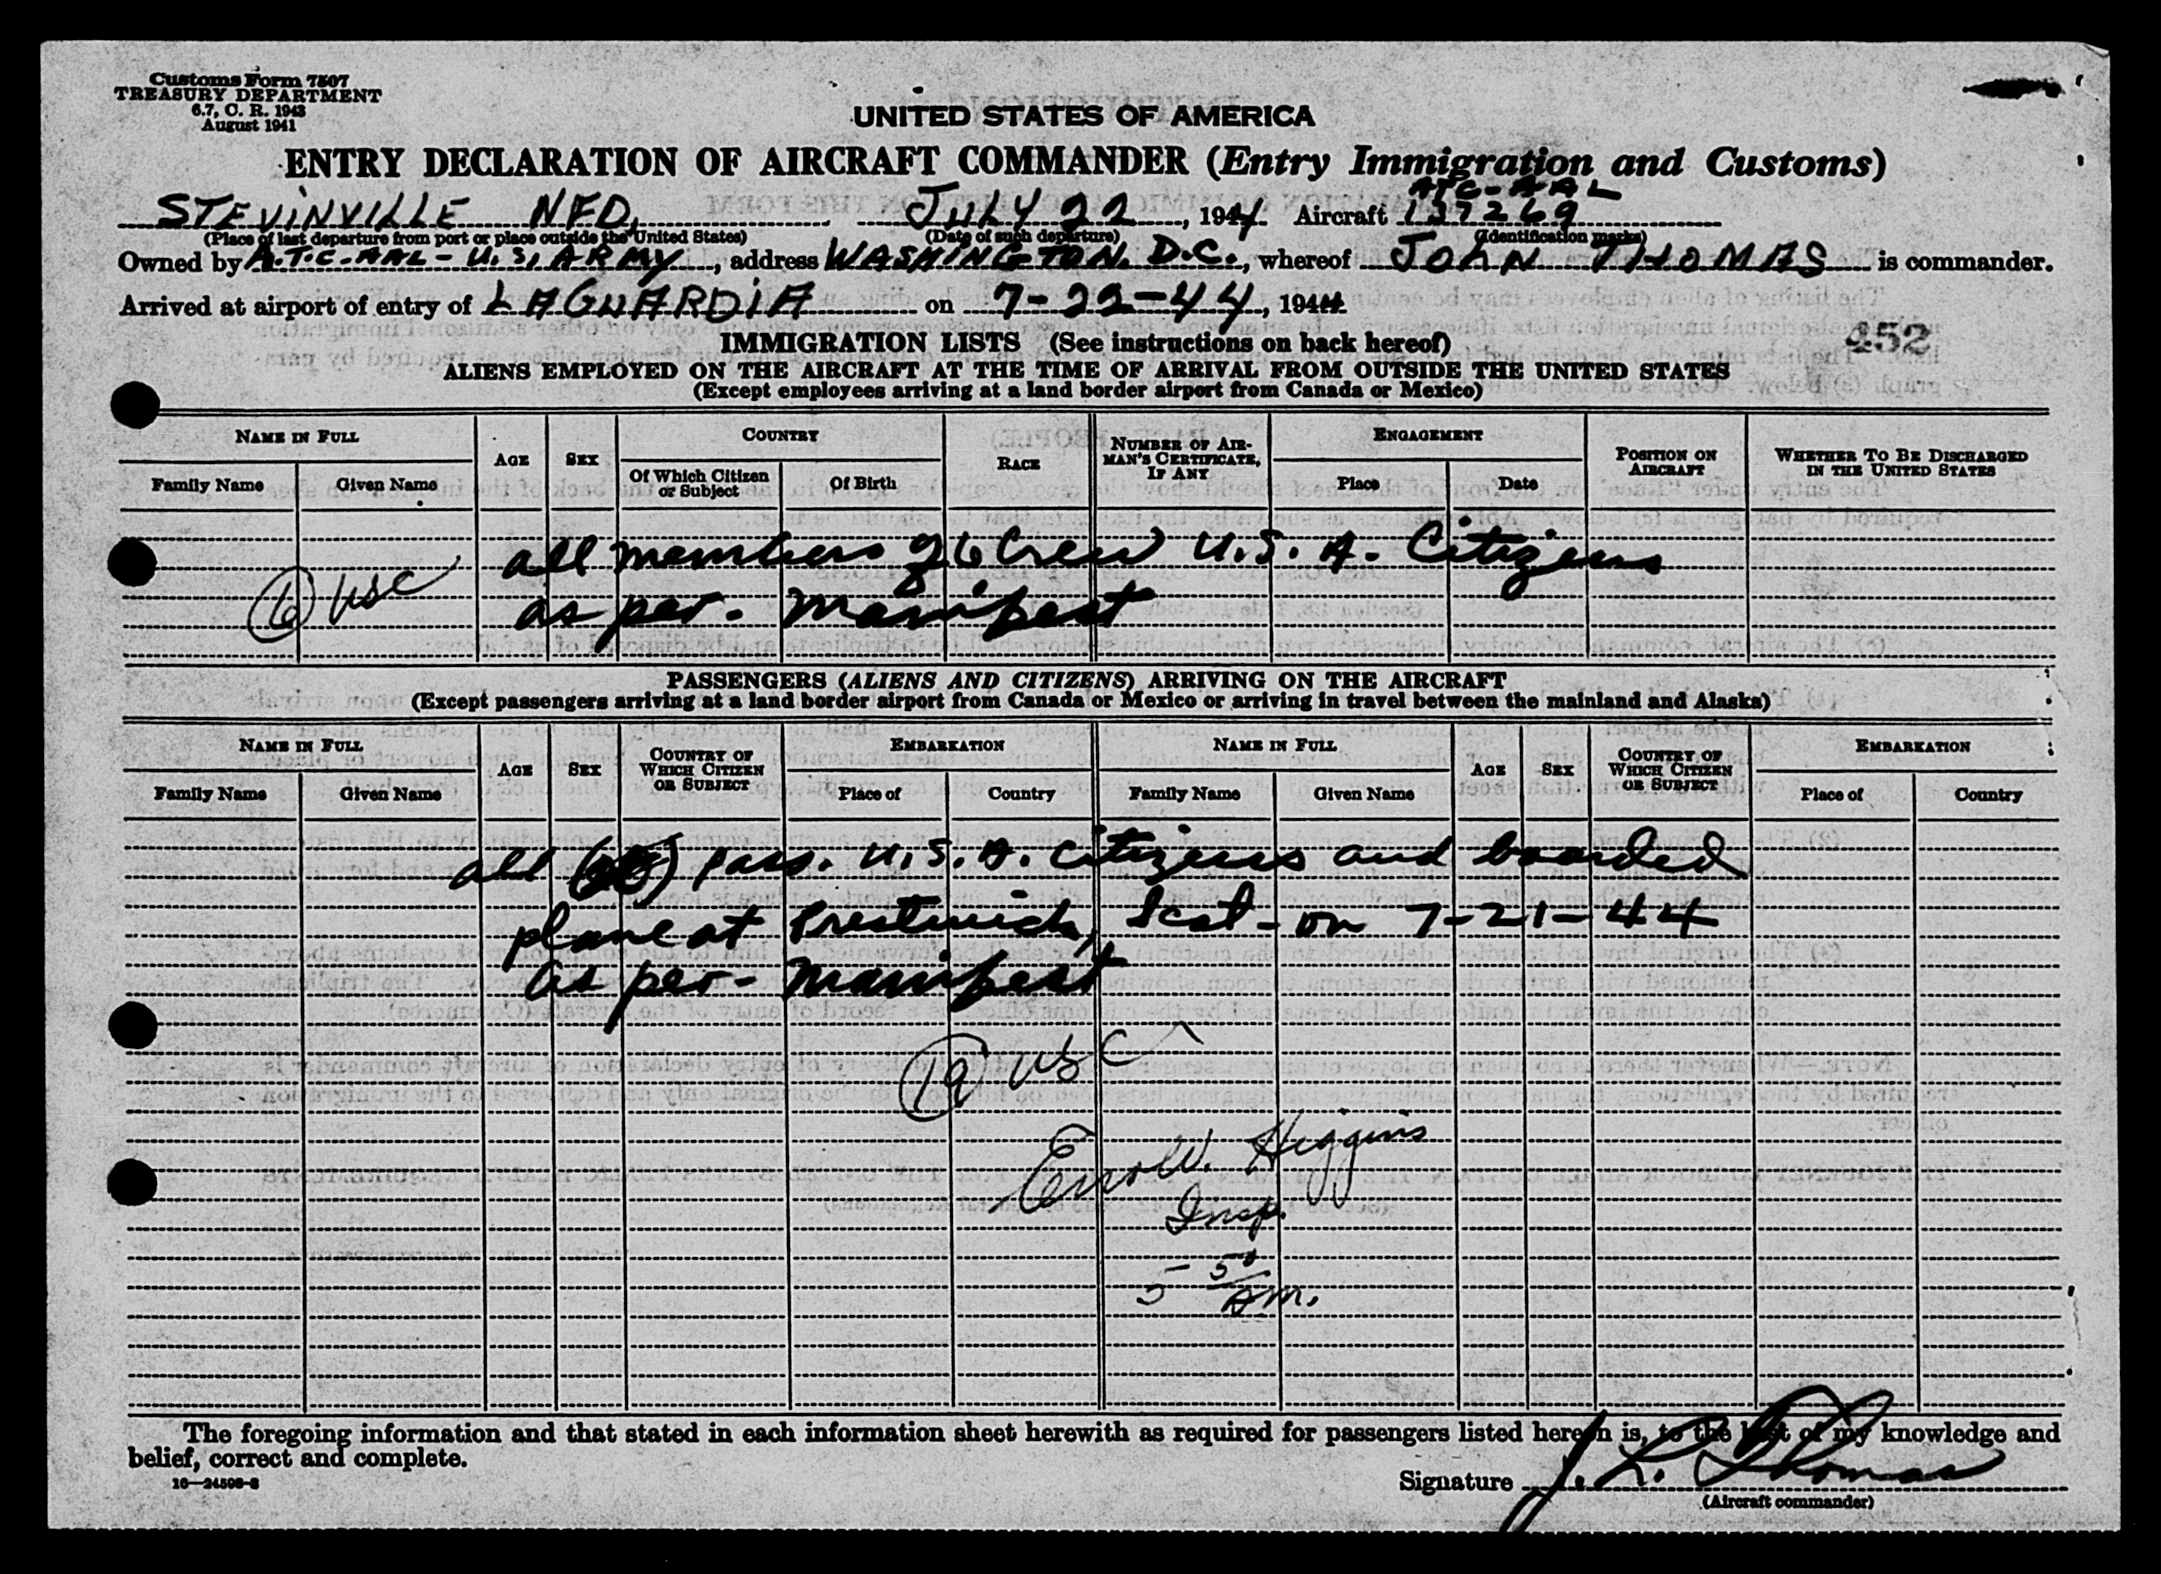 Customs Form 7507
TREASURY DEPARTMENT
6.7, C. R. 1943
August 1941
UNITED STATES OF AMERICA
ENTRY DECLARATION OF AIRCRAFT COMMANDER (Entry Immigration and Customs)
ATC-AAL
STEVINVILLE NFD. JULY 22, 1944 Aircraft 137269
(Place of last departure from port or place outside the United States) (Date of such departure) (Identification marks)
Owned by A.T.C-AAL-U.S. ARMY, address WASHINGTON. D.C., whereof JOHN THOMAS is commander.
Arrived at airport of entry of LAGUARDIA on 7-22-44, 1944
452
IMMIGRATION LISTS (See instructions on back hereof)
ALIENS EMPLOYED ON THE AIRCRAFT AT THE TIME OF ARRIVAL FROM OUTSIDE THE UNITED STATES
(Except employees arriving at a land border airport from Canada or Mexico)
NAME IN FULL AGE SEX COUNTRY RACE NUMBER OF AIRMAN'S CERTIFICATE, IF ANY ENGAGEMENT POSITION ON AIRCRAFT WHETHER TO BE DISCHARGED IN THE UNITED STATES
Family Name Given Name Of Which Citizen or Subject Of Birth Place Date
all members of 6 Crew U.S.A. Citizens
6 USC
as per. Manifest
PASSENGERS (ALIENS AND CITIZENS) ARRIVING ON THE AIRCRAFT
(Except passengers arriving at a land border airport from Canada or Mexico or arriving in travel between the mainland and Alaska)
NAME IN FULL AGE SEX COUNTRY OF WHICH CITIZEN OR SUBJECT EMBARKATION NAME IN FULL AGE SEX COUNTRY OF WHICH CITIZEN OR SUBJECT EMBARKATION
Family Name Given Name Place of Country Family Name Given Name Place of Country
all pass. U.S.A. citizens and boarded
plane at Prestwick, Scot-on 7-21-44
as per- Manifest
19 USC
W. Higgins
Insp.
5 50 AM.
The foregoing information and that stated in each information sheet herewith as required for passengers listed herein is, to the best of my knowledge and
belief, correct and complete.
16—24598-3
Signature J. L. Thomas
(Aircraft commander)